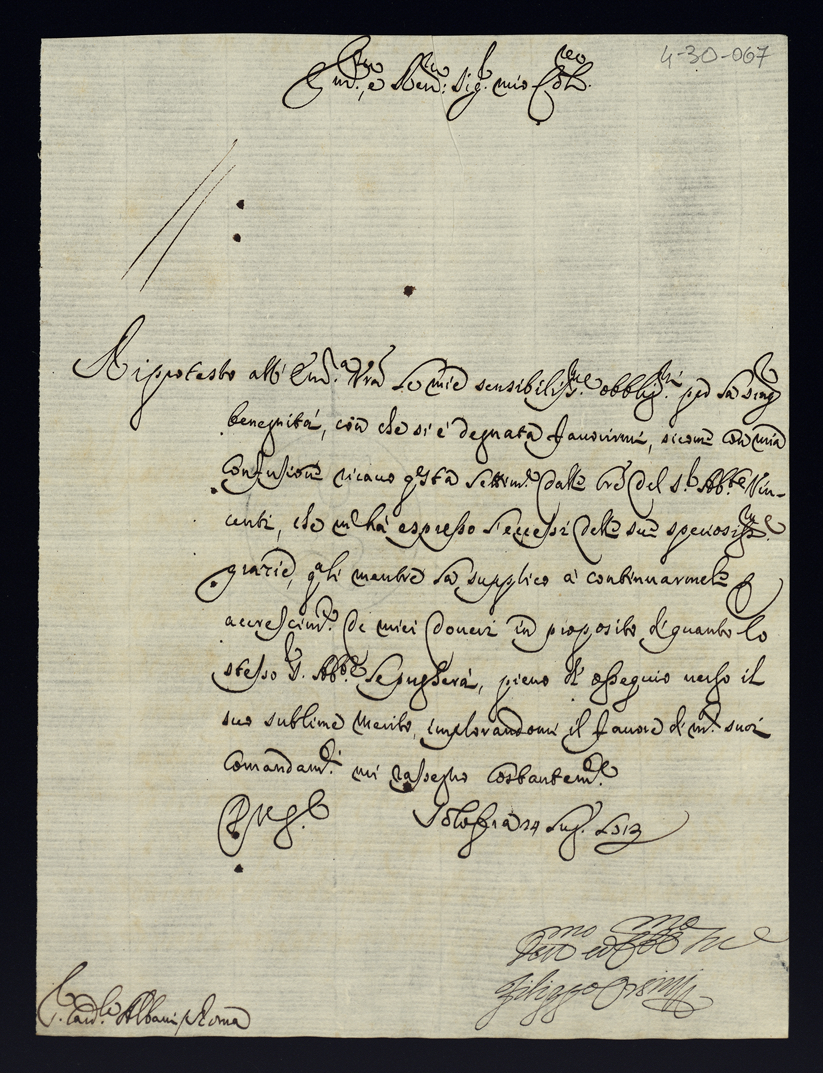 4-30-067
Em.mo, e Ren.mo Sig.r mio Col.mo
Ripprotesto all' Em.a Vra le mie sensibilis.me obblig.ni per la sing.r
benegnità, con che si è degnata favorirmi, sicome con mia
confusione ricavo q.sta Settim.a dalle lre del S.r Abb.te Vin-
centi, che m'hà espresso l'eccessi delle sue speciosis.me
grazie, q.li mentre la supplico à continuarmele p
accrescim.to de miei doveri in proposito di quanto lo
stesso S.r Abb.te le pugherà, pieno di ossequio verso il
suo sublime merito, implorandomi il favore di m.ti suoi
comandam.ti mi rassegno costantem.te
Solofra 24 Lug.
Filippo Orsini
S.r Card.le Albani / Roma